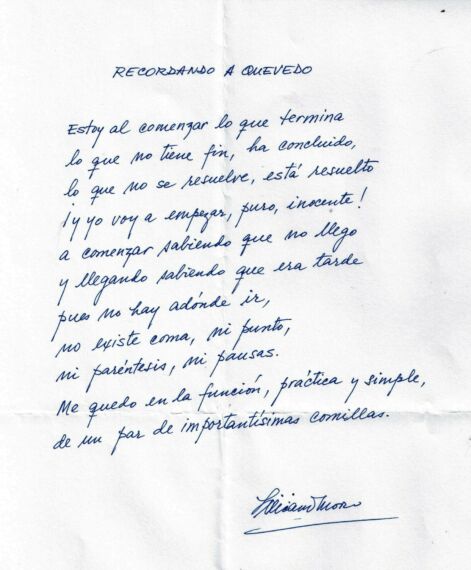 RECORDANDO A QUEVEDO
Estoy al comenzar lo que termina
lo que no tiene fin, ha concluido,
lo que no se resuelve, está resuelto
¡y yo voy a empezar, puro, inocente!
a comenzar sabiendo que no llego
y llegando sabiendo que era tarde
pues no hay adónde ir,
no existe coma, ni punto,
ni paréntesis, ni pausas.
Me quedo en la función, práctica y simple,
de un par de importantísimas comillas.